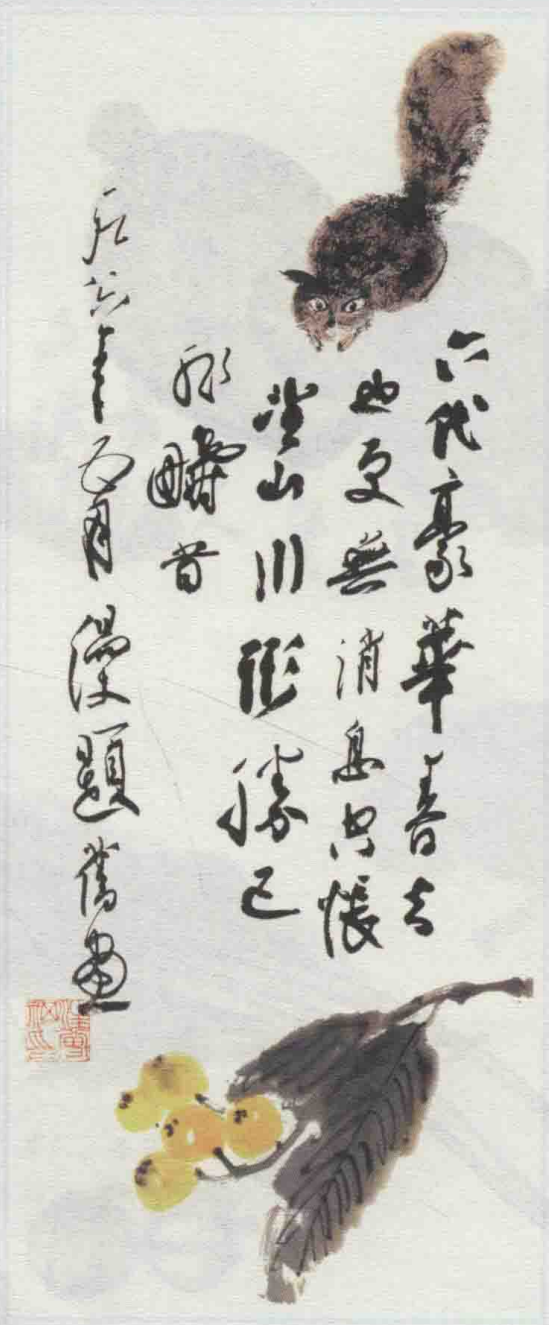 六代豪華春去
也更無消息空悵
望山川形勝已
非疇昔
一九八六年五月漫題舊畫